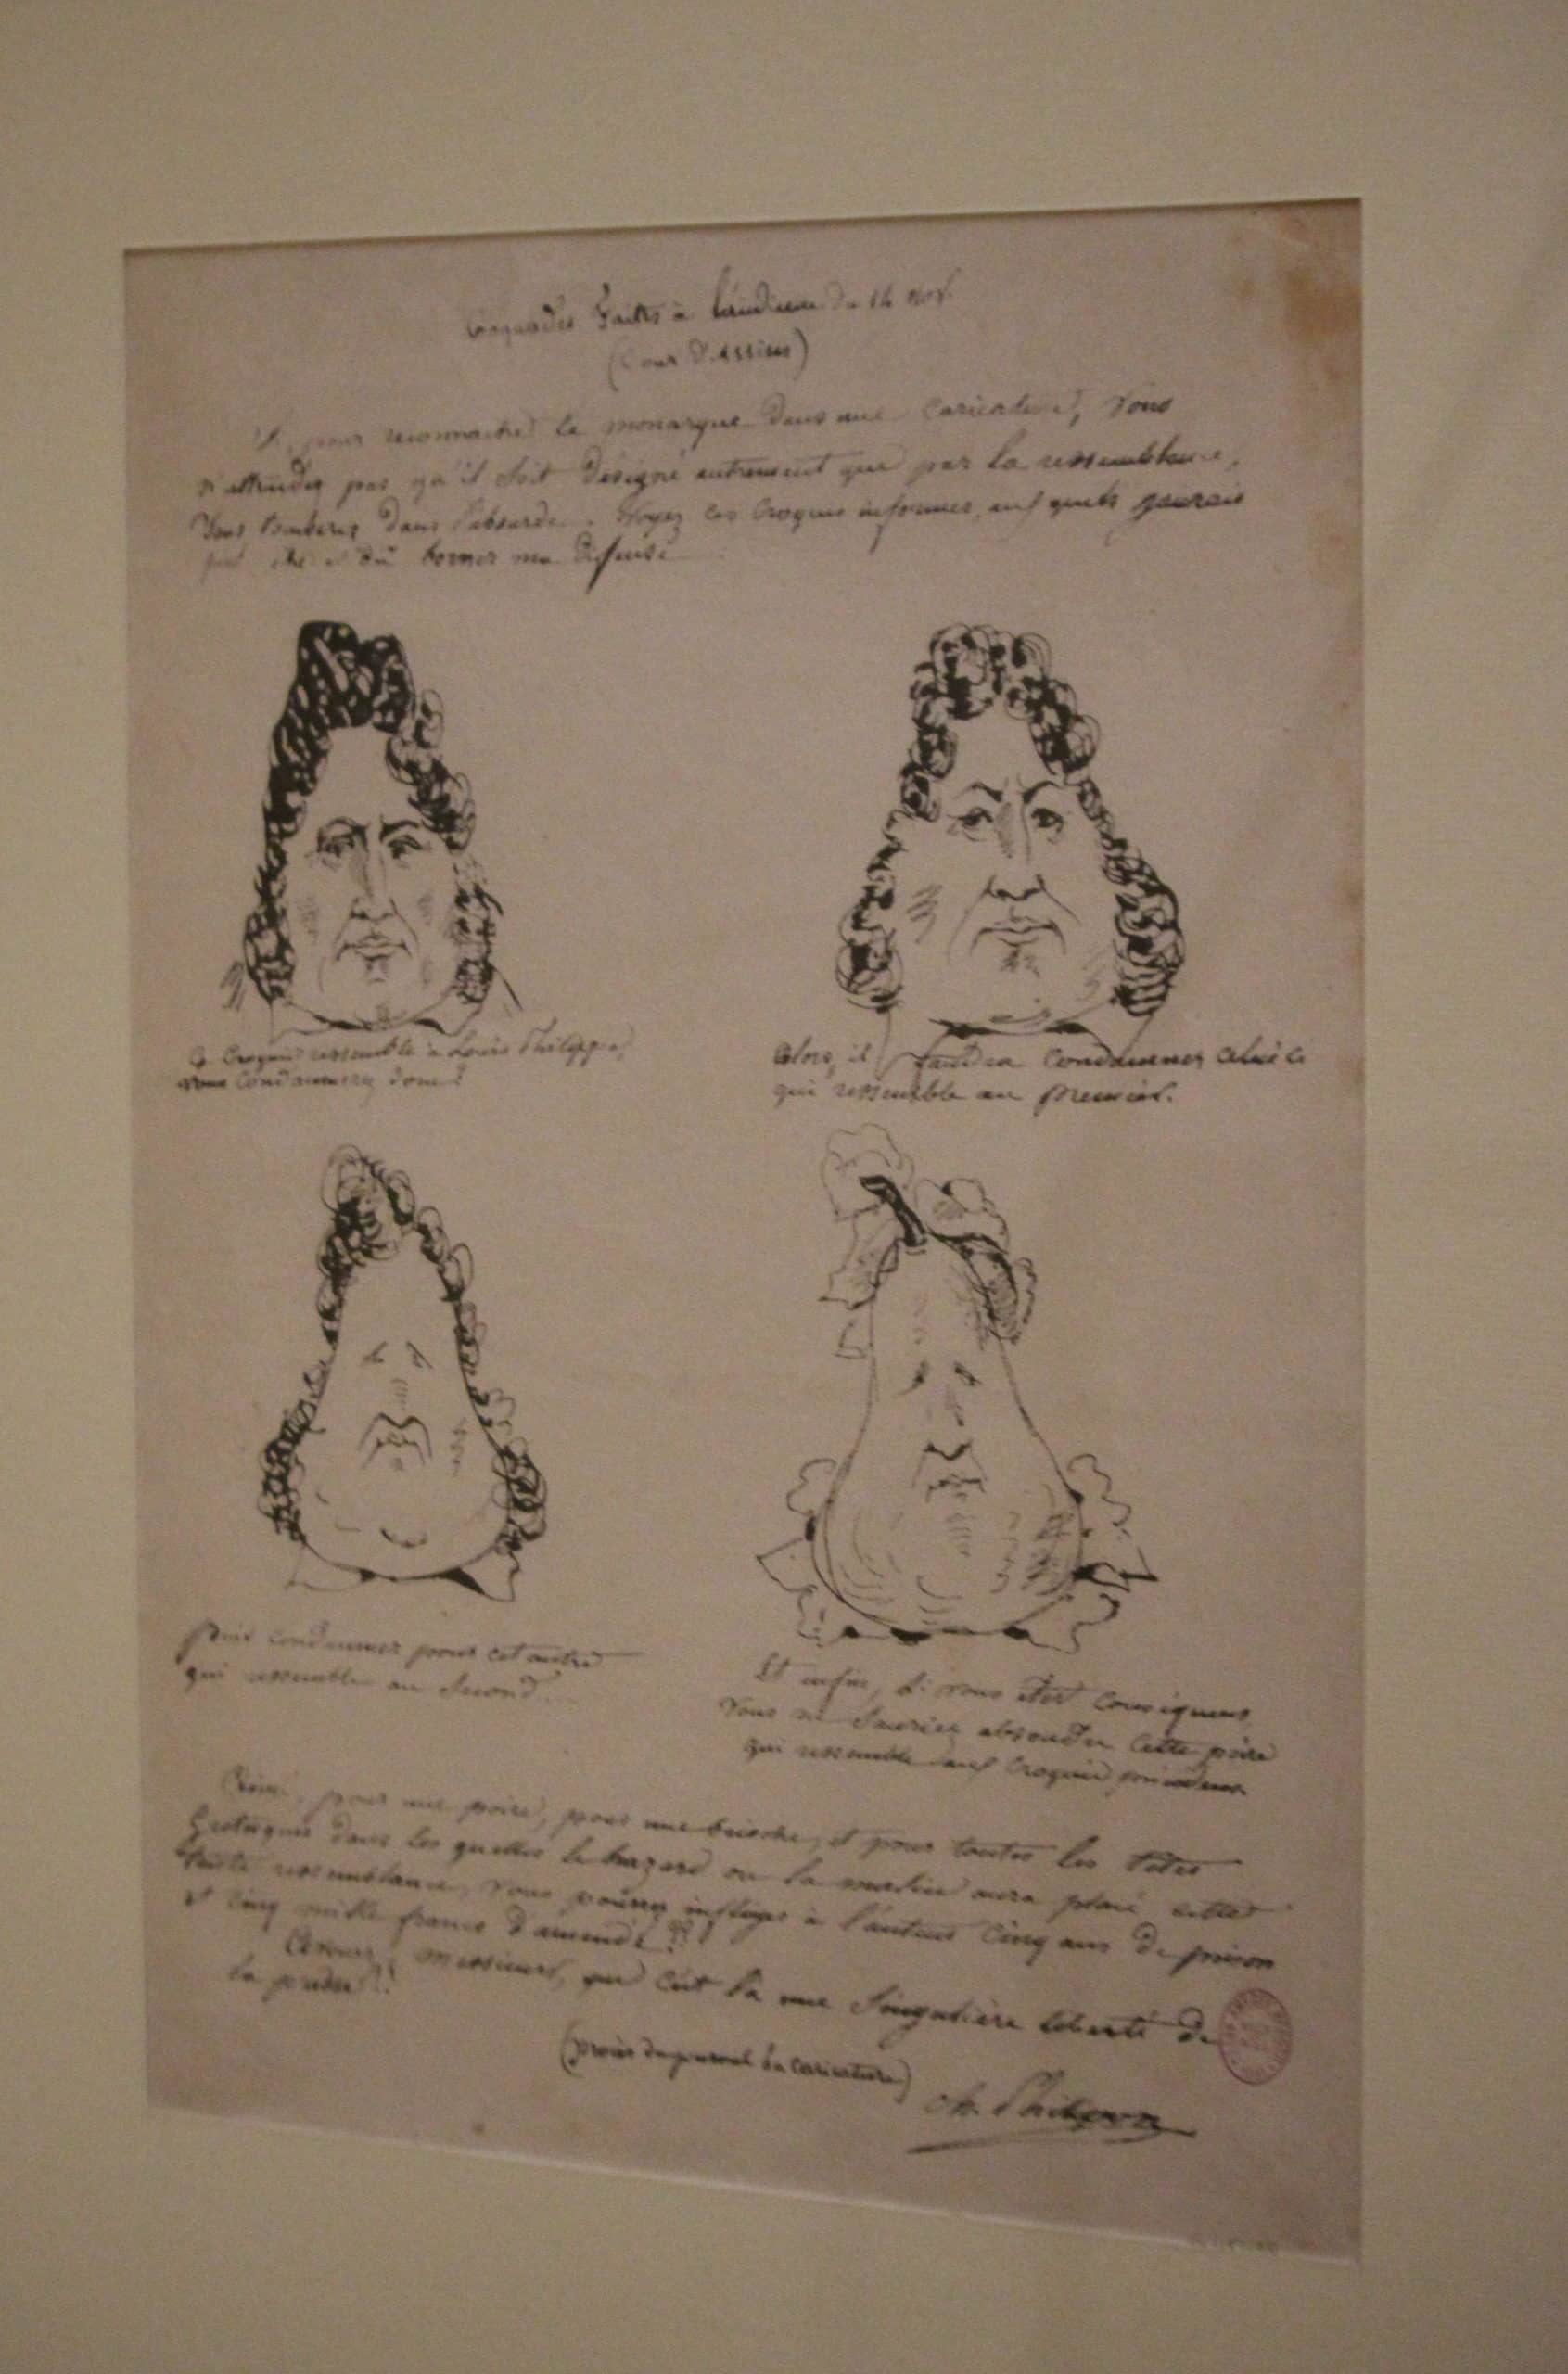 Croquades faites à l'audience du 14 nov.
(Cour d'Assises)
Si, pour reconnaitre le monarque dans une caricature, vous
n'attendez pas qu'il soit désigné autrement que par la ressemblance,
vous tomberez dans l'absurde. Voyez ces croquis informes, auxquels j'aurais
peut être dû borner ma défense
Ce croquis ressemble à Louis Philippe,
vous condamnerez donc?
Alors, il faudra condamner celui-ci
qui ressemble au premier.
Puis condamner pour cet autre
qui ressemble au second...
Et enfin, si vous êtes conséquens,
vous ne sauriez absoudre cette poire
qui ressemble aux croquis précédens.
Ainsi, pour une poire, pour une brioche, et pour toutes les têtes
grotesques dans les quelles le hazard ou la malice aura placé cette
triste ressemblance, vous pourrez infliger à l'auteur cinq ans de prison
et cinq mille francs d'amende!!
Avouez, Messieurs, que c'est là une singulière liberté de
la presse!!
(procès du journal la caricature)
Ch. Philipon